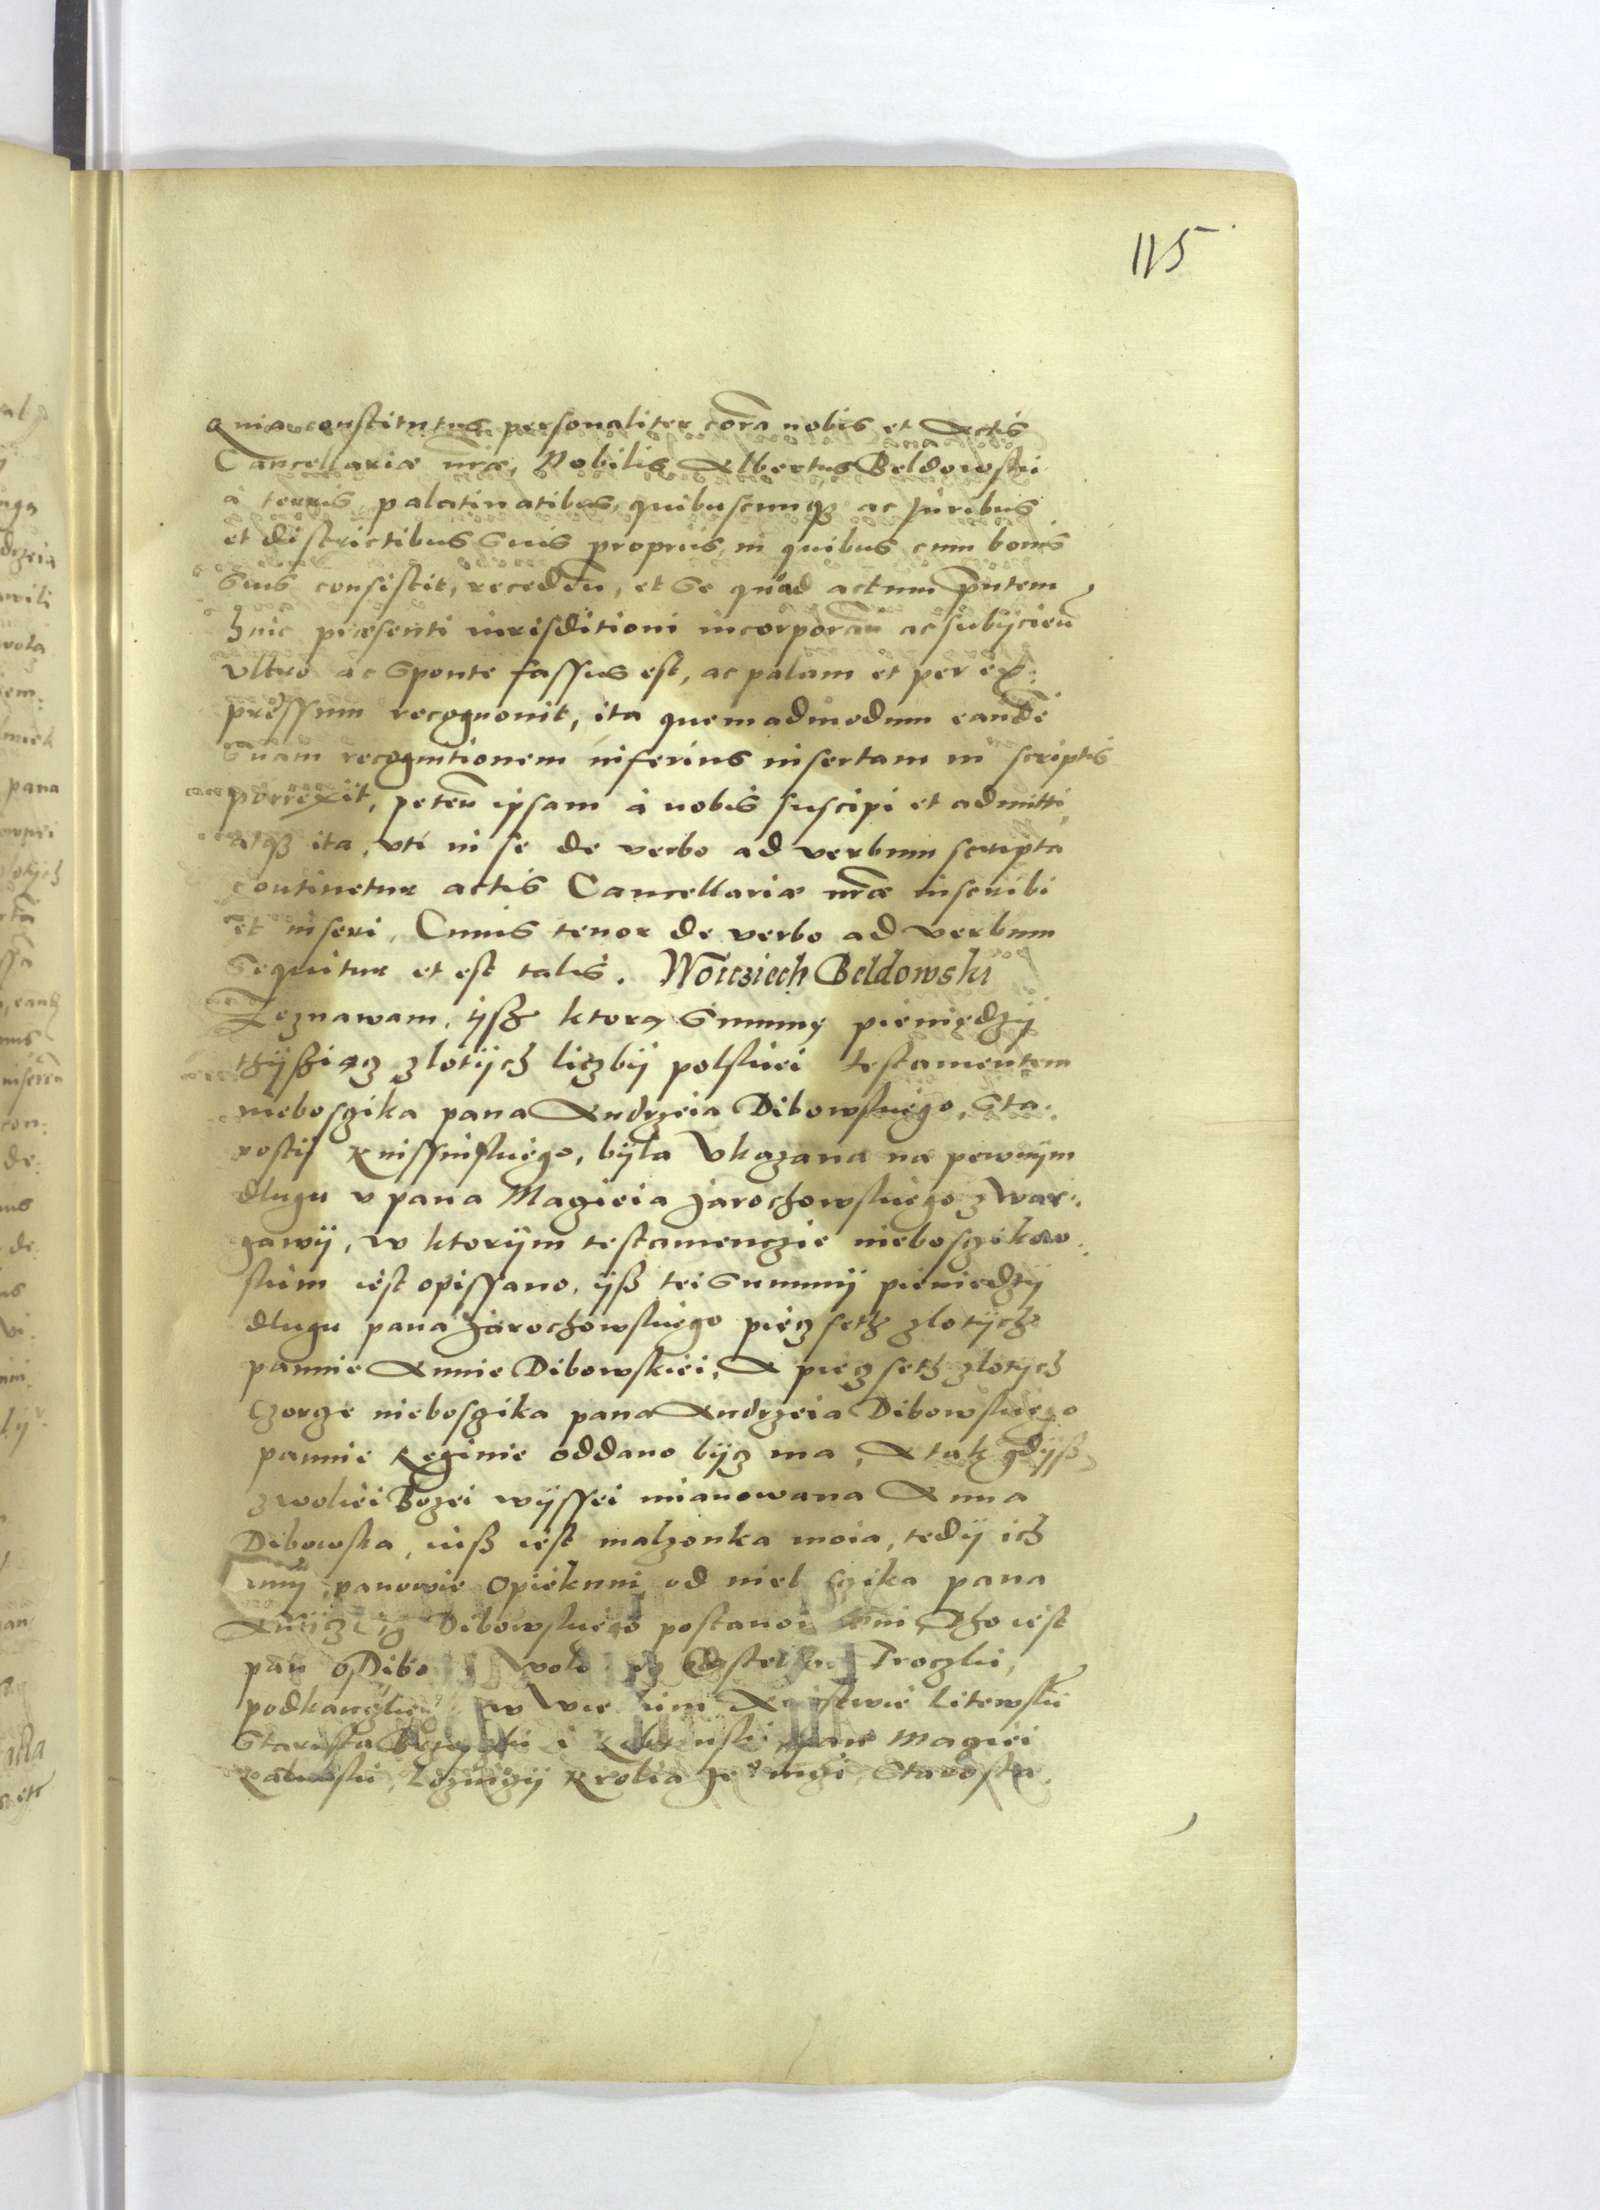 115
Quia constitutus personaliter corā nobis et Actis
Cancellariæ nr̄æ, Nobilis Albertus Beldowski
à terris palatinatibus, quibuscunq; ac Juribus
et districtibus Suis proprius, in quibus cum bonis
Suis consistit, receden̄, et Se quoad actum pn̄tem
huic præsenti iurisditioni incorporan̄ ac subijcien̄
vltro ac Sponte fassus est, ac palam et per ex:
pressum recognouit, ita quemadmodum eandē
Suam recognitionem inferius insertam in scriptis
porrexit, peten̄ ipsam à nobis suscipi et admitti,
atq; ita, vti in se de verbo ad verbum scripta
continetur actis Cancellariæ nr̄æ inscribi
et inseri, Cuius tenor de verbo ad verbum
Sequitur et est talis. Woicziech Beldowski
Zeznawam, ijsz ktorą Summę pieniędzij
thijsziącz zlotijch liczbij polskiei testamentem
nieboszika pana Andrzeia Dibowskiego, Sta:
rostij Knissinskiego, bijla Vkazana na pewnijm
dlugu v pana Magieia Jarochowskiego z War:
gawij, w ktorijm testamenczie nieboszikow:
skim iest opissano, ijsz tei Summij pieniedzij
dlugu pana Jarochowskiego pięcz seth zlotijch
pannie Annie Dibowskiei, A pięcz seth zlotijch
Czorge nieboszika pana Andrzeia Dibowskiego
pannie Reginie oddano bijcz ma, A tak gdijsz
z woliei Bozei wijssei mianowana Anna
Dibowska, iusz iest malzonka moia, tedij ich
mij panowie Opiekuni od nieb szika pana
Dibowskiego postanowi eni, Tho iest
pan Dibo Troczki,
podkancler w wie kim Xięstwie Litewski
Starosta i pan Magiei
Lozniczij Krolia Je mcзi, Starosta